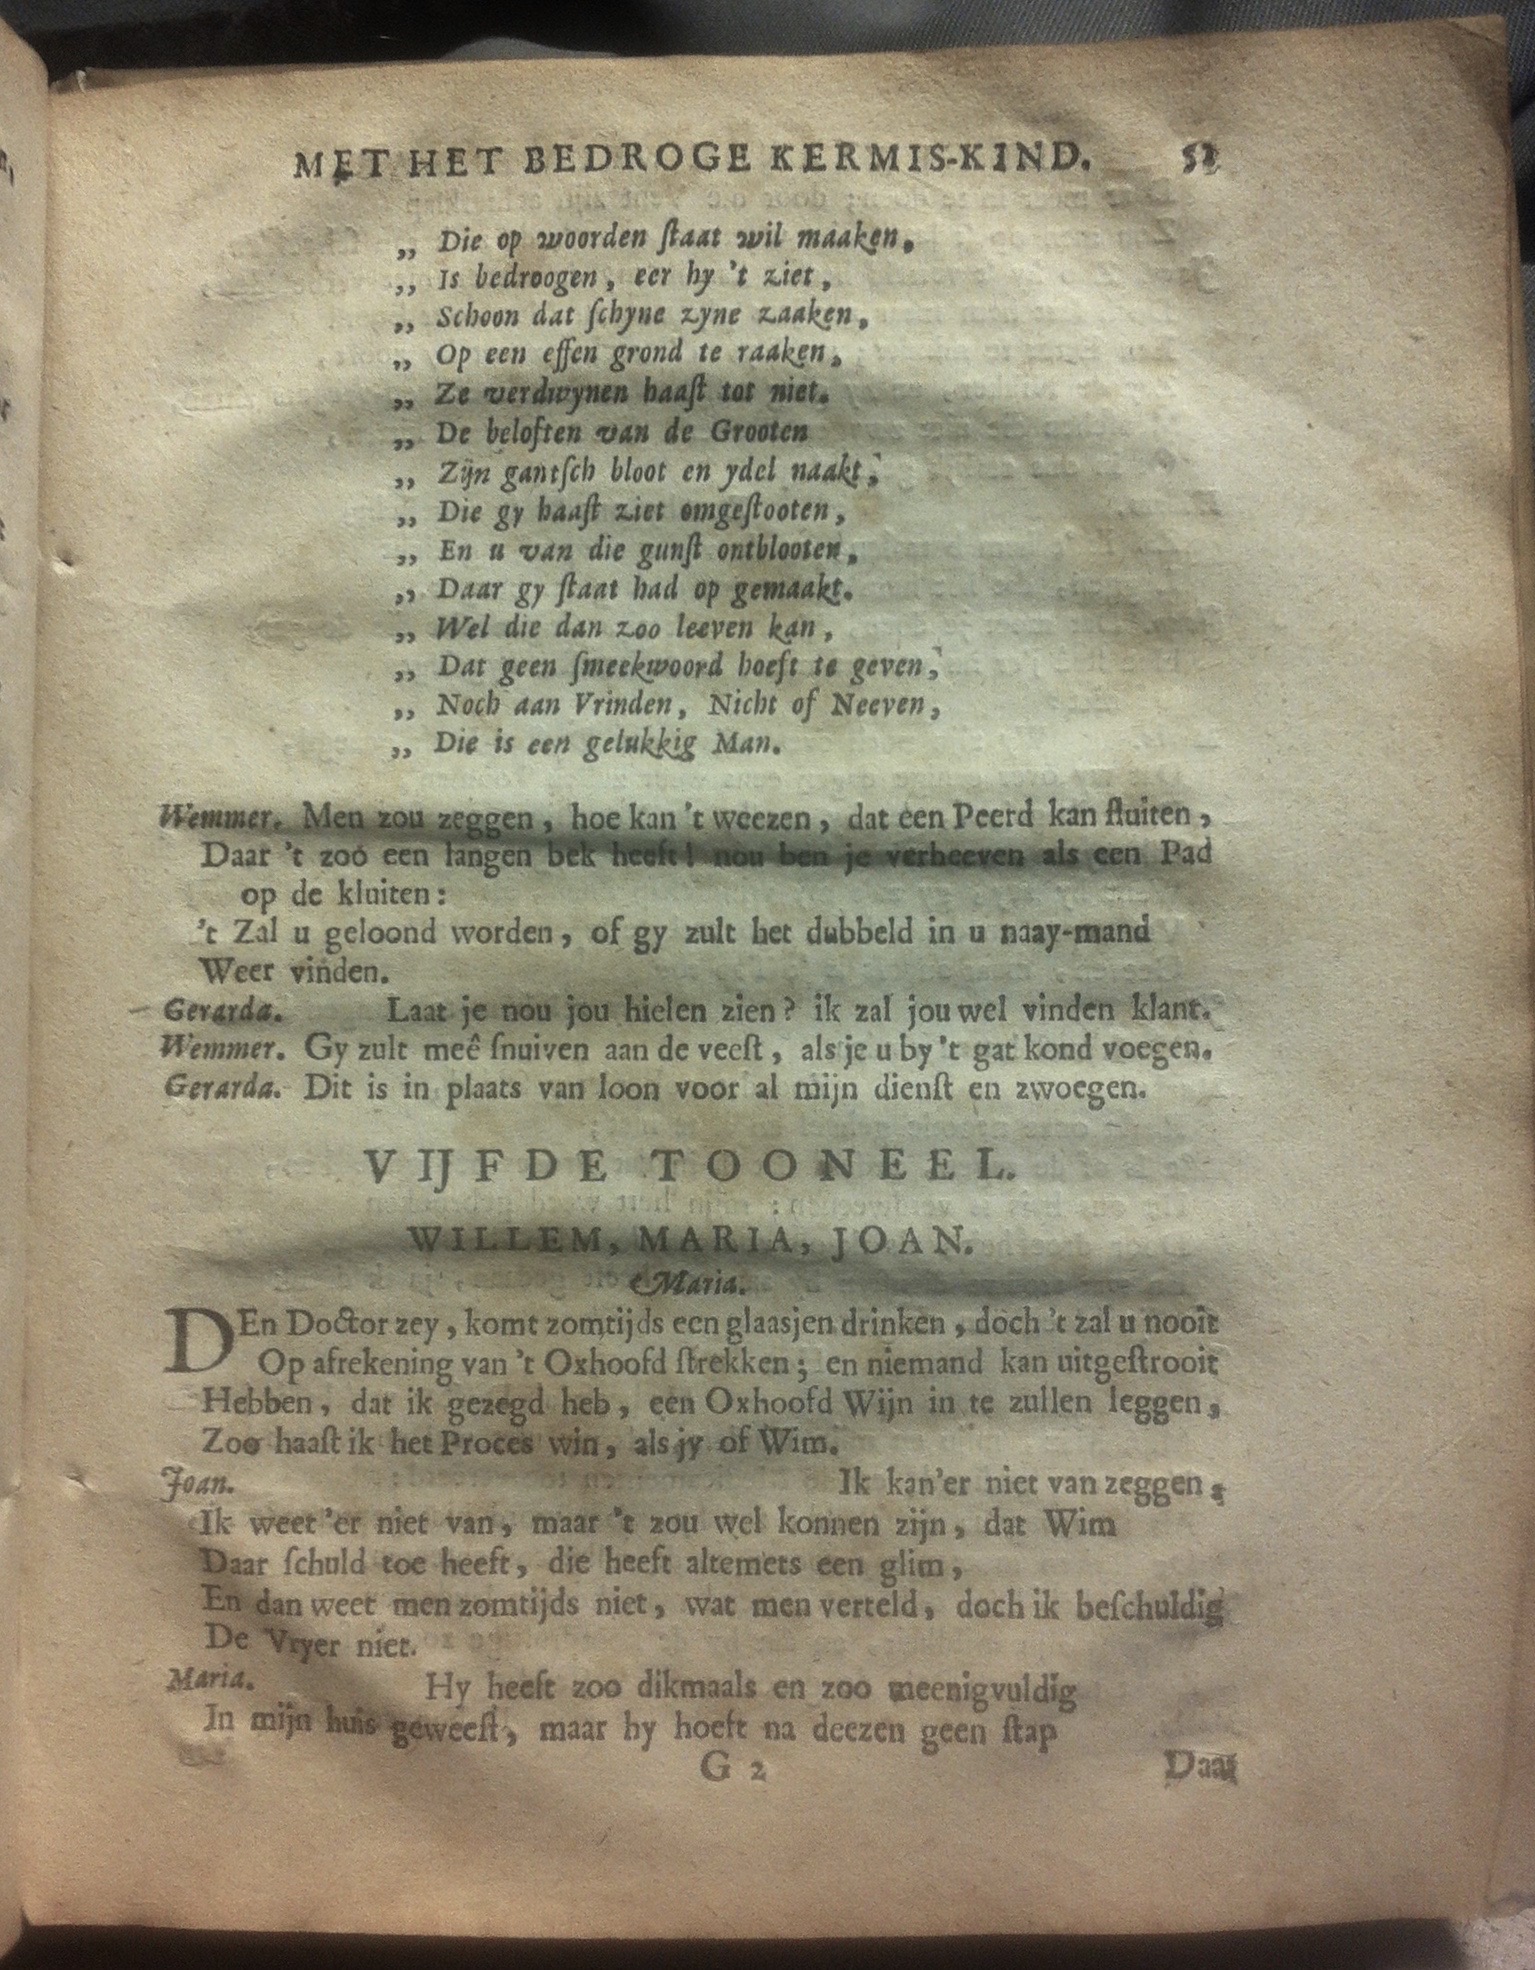 MET HET BEDROGE KERMIS-KIND. 51
„ Die op woorden ſtaat wil maaken,
„ Is bedroogen, eer hy 't ziet,
„ Schoon dat ſchyne zyne zaaken,
„ Op een effen grond te raaken,
„ Ze verdwynen haaſt tot niet.
„ De beloften van de Grooten
„ Zijn gantſch bloot en ydel naakt;
„ Die gy haaſt ziet omgeſtooten,
„ En u van die gunſt ontblooten,
„ Daar gy ſtaat had op gemaakt.
„ Wel die dan zoo leeven kan,
„ Dat geen ſmeekwoord hoeft te geven,
„ Noch aan Vrinden, Nicht of Neeven,
„ Die is een gelukkig Man.
Wemmer. Men zou zeggen, hoe kan 't weezen, dat een Peerd kan fluiten,
Daar 't zoo een langen bek heeft! nou ben je verheeven als een Pad
op de kluiten:
't Zal u geloond worden, of gy zult het dubbeld in u naay-mand
Weer vinden.
Gerarda. Laat je nou jou hielen zien? ik zal jou wel vinden klant.
Wemmer. Gy zult meê ſnuiven aan de veeſt, als je u by 't gat kond voegen.
Gerarda. Dit is in plaats van loon voor al mijn dienſt en zwoegen.
VIJFDE TOONEEL.
WILLEM, MARIA, JOAN.
Maria.
DEn Doctor zey, komt zomtijds een glaasjen drinken, doch 't zal u nooit
Op afrekening van 't Oxhoofd ſtrekken; en niemand kan uitgeſtrooit
Hebben, dat ik gezegd heb, een Oxhoofd Wijn in te zullen leggen,
Zoo haaſt ik het Proces win, als jy of Wim.
Joan. Ik kan'er niet van zeggen,
Ik weet 'er niet van, maar 't zou wel konnen zijn, dat Wim
Daar ſchuld toe heeft, die heeft altemets een glim,
En dan weet men zomtijds niet, wat men verteld, doch ik beſchuldig
De Vryer niet.
Maria. Hy heeft zoo dikmaals en zoo meenigvuldig
In mijn huis geweeſt, maar hy hoeft na deezen geen ſtap
G 2 Daar